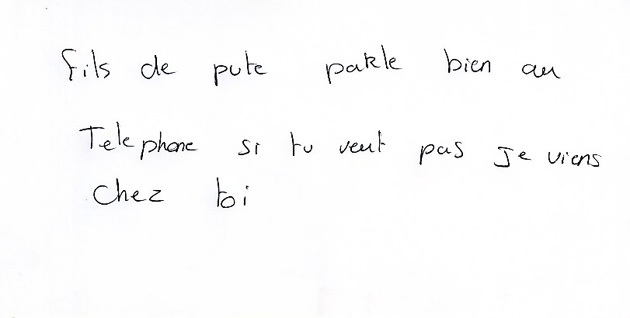 fils de pute parle bien au
Telephone si tu veut pas Je viens
Chez toi